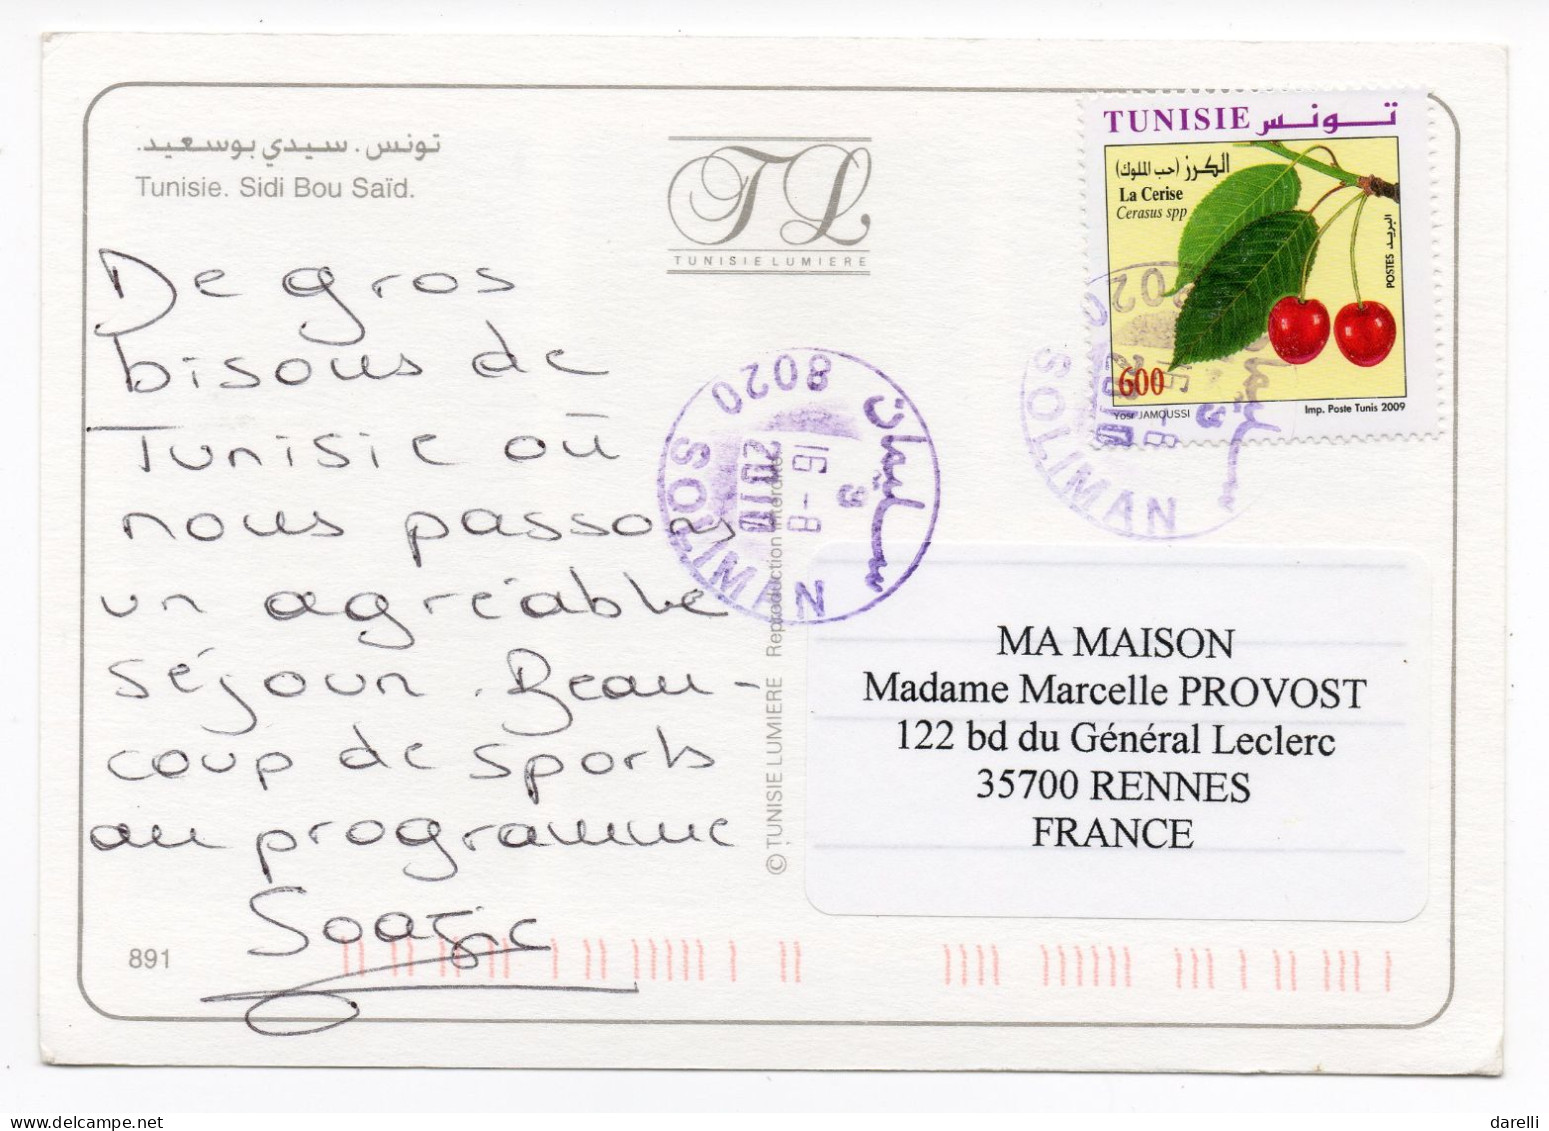 تونس. سيدي بوسعيد.
Tunisie. Sidi Bou Saïd.
TL
TUNISIE LUMIERE
TUNISIE تونس
الكرز (حب الملوك)
La Cerise
Cerasus spp
البريد POSTES
600
Yosr JAMOUSSI
Imp. Poste Tunis 2009
De gros
bisous de
Tunisie où
nous passons
un agréable
séjour. Beau-
coup de sports
au programme
Soazic
8020
سليمان
16 -8
2010
9
SOLIMAN
8020
سليمان
16 -8
2010
9
SOLIMAN
© TUNISIE LUMIERE Reproduction interdite
MA MAISON
Madame Marcelle PROVOST
122 bd du Général Leclerc
35700 RENNES
FRANCE
891
darelli